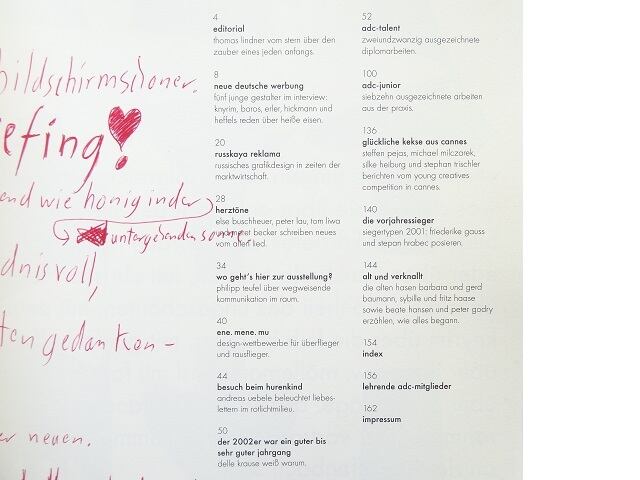 bildschirmschoner.
efing!
end wie honig in der
untergehenden sonne.
dnisvoll,
ten gedanken-
er neuen.
4
editorial
thomas lindner vom stern über den
zauber eines jeden anfangs.
8
neue deutsche werbung
fünf junge gestalter im interview:
knyrim, baros, erler, hickmann und
heffels reden über heiße eisen.
20
russkaya reklama
russisches grafikdesign in zeiten der
marktwirschaft.
28
herztöne
else buschheuer, peter lau, tom liwa
und meret becker schreiben neues
vom alten lied.
34
wo geht's hier zur ausstellung?
philipp teufel über wegweisende
kommunikation im raum.
40
ene. mene. mu
design-wettbewerbe für überflieger
und rausflieger.
44
besuch beim hurenkind
andreas uebele beleuchtet liebes-
lettern im rotlichtmilieu.
50
der 2002er war ein guter bis
sehr guter jahrgang
delle krause weiß warum.
52
adc-talent
zweiundzwanzig ausgezeichnete
diplomarbeiten.
100
adc-junior
siebzehn ausgezeichnete arbeiten
aus der praxis.
136
glückliche kekse aus cannes
steffen pejas, michael milczarek,
silke helburg und stephan trischler
berichten vom young creatives
competition in cannes.
140
die vorjahressieger
siegertypen 2001: friederike gauss
und stepan hrabec posieren.
144
alt und verknallt
die alten hasen barbara und gerd
baumann, sybille und fritz haase
sowie beate hansen und peter godry
erzählen, wie alles begann.
154
index
156
lehrende adc-mitglieder
162
impressum